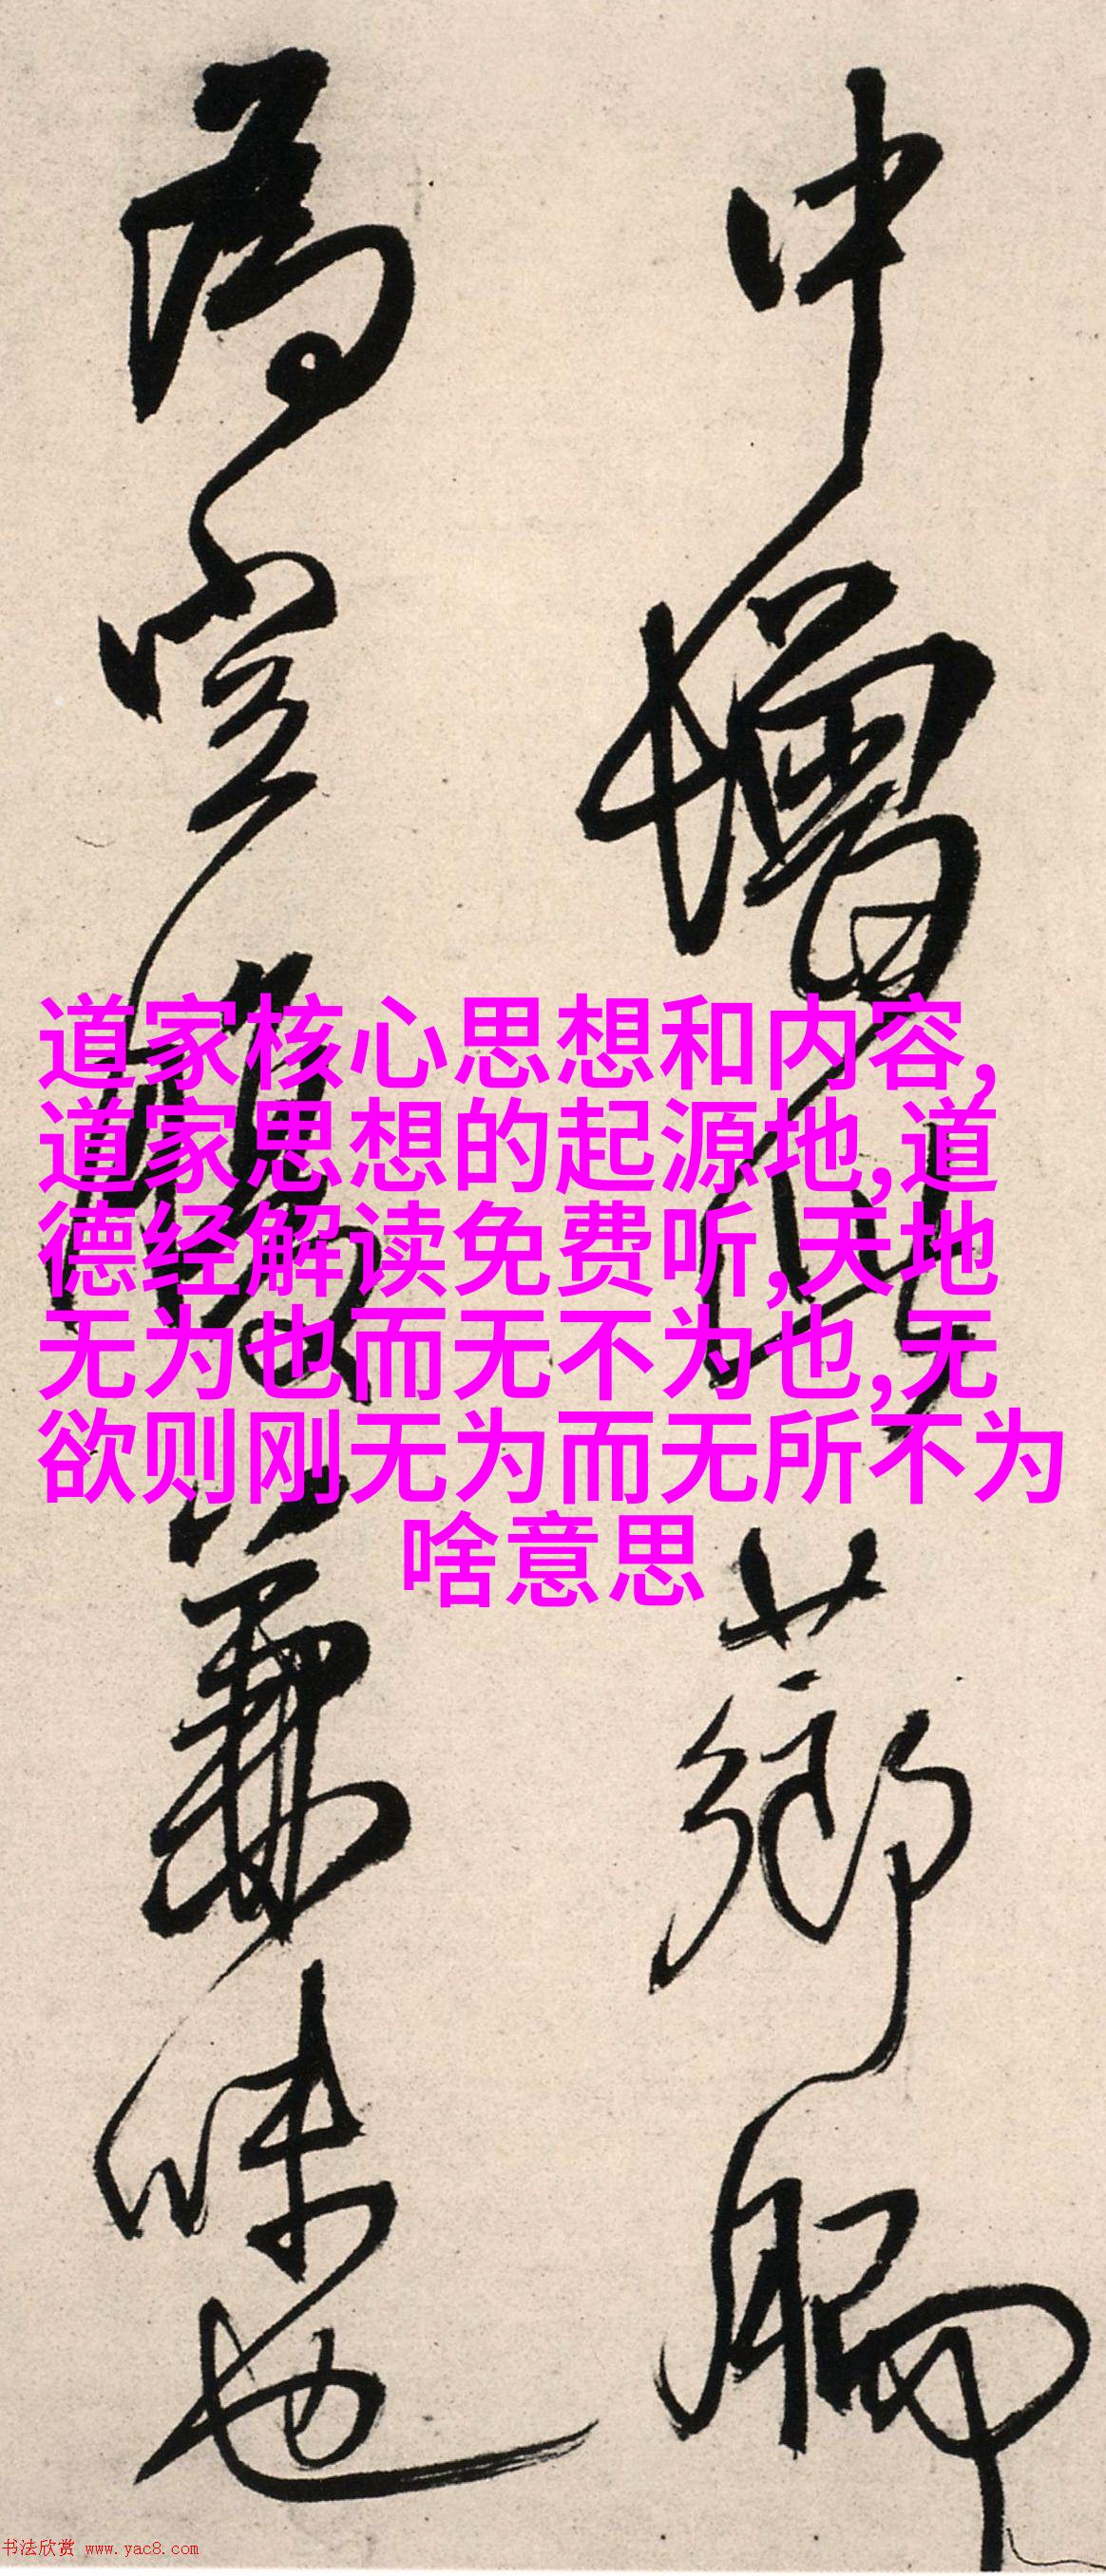 中增
芗
為
兼味也
道家核心思想和内容,
道家思想的起源地,道
德经解读免费听,天地
无为也而无不为也,无
欲则刚无为而无所不为
啥意思
书法欣赏 www.yac8.com